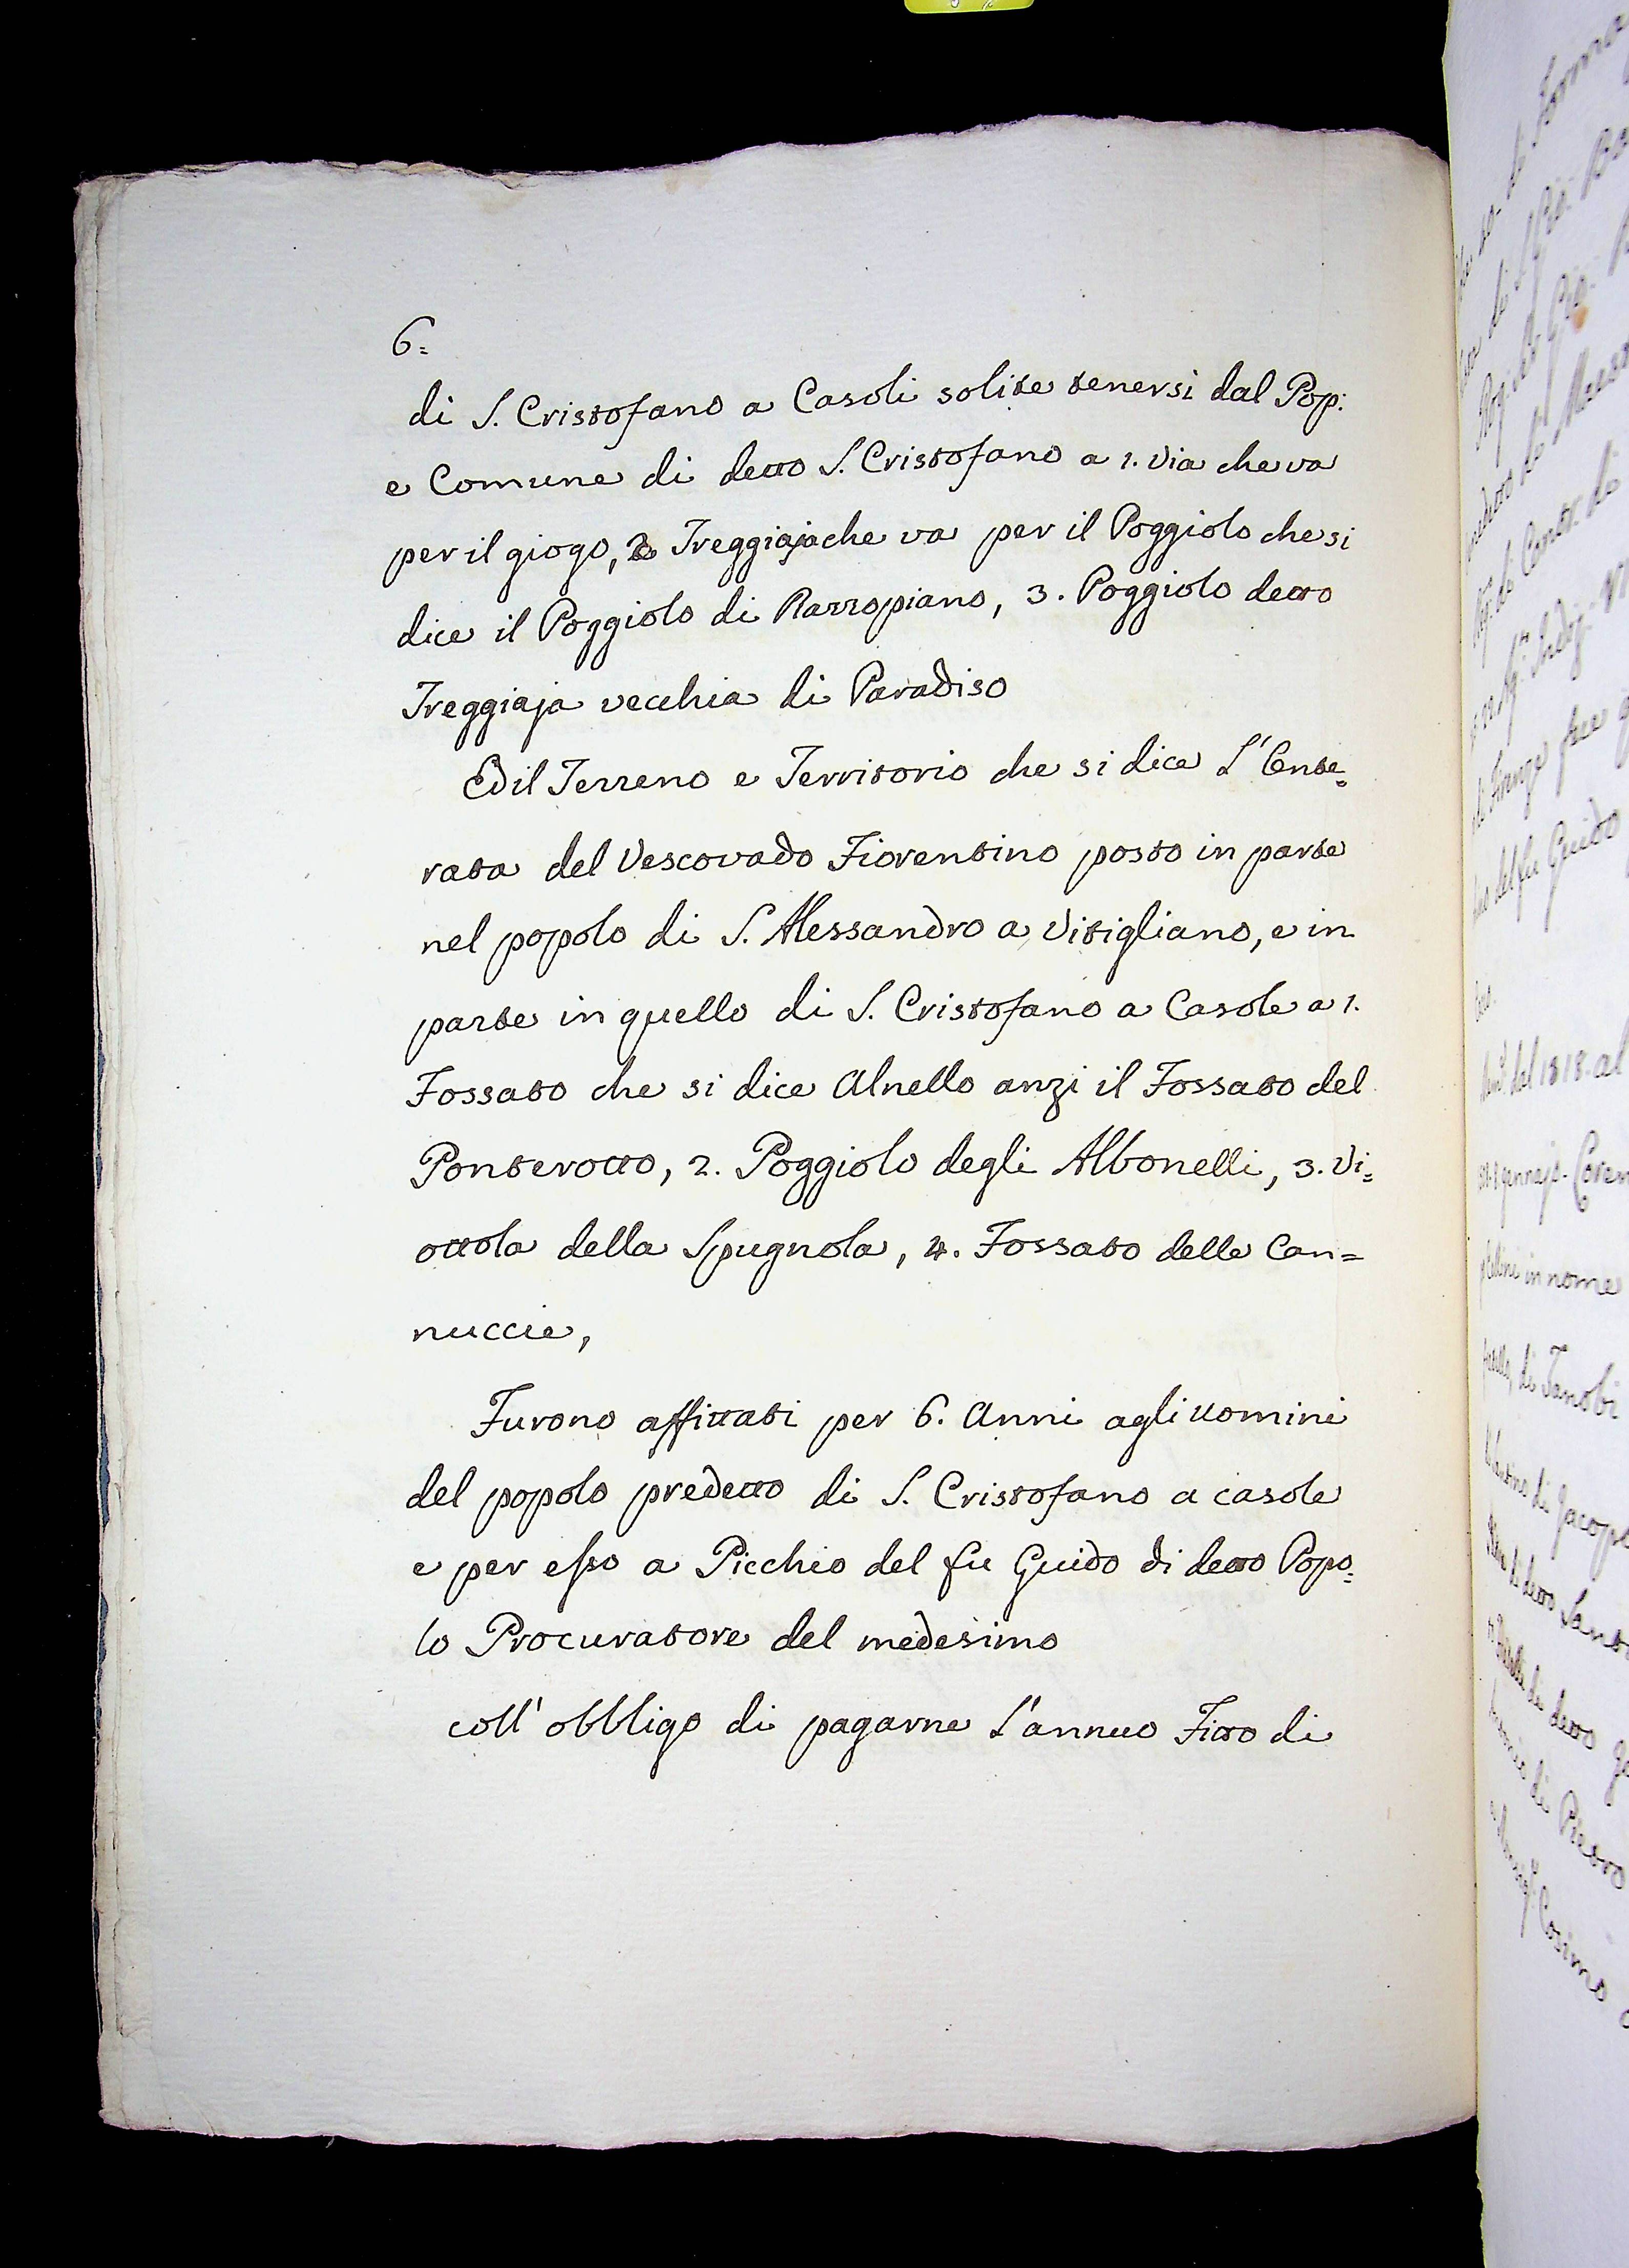 6=
di S. Cristofano a Casoli solite tenersi dal Pop:
e Comune di detto S. Cristofano a 1. Via che va
per il giogo, 2 Treggiaja che va per il Poggiolo che si
dice il Poggiolo di Razzopiano, 3. Poggiolo detto
Treggiaja vecchia di Paradiso
Ed il Terreno e Territorio che si dice L'Ente=
rata del Vescovado Fiorentino posto in parte
nel popolo di S. Alessandro a Vitigliano, e in
parte in quello di S. Cristofano a Casole a 1.
Fossato che si dice Alnello anzi il Fossato del
Ponterotto, 2. Poggiolo degli Albonelli, 3. Vi=
ottola della Spugnola, 4. Fossato delle Can=
nuccie,
Furono affittati per 6. Anni agli uomini
del popolo predetto di S. Cristofano a casole
e per esso a Picchio del fu Guido di detto Popo=
lo Procuratore del medesimo
coll' obbligo di pagarne l'annuo Fitto di